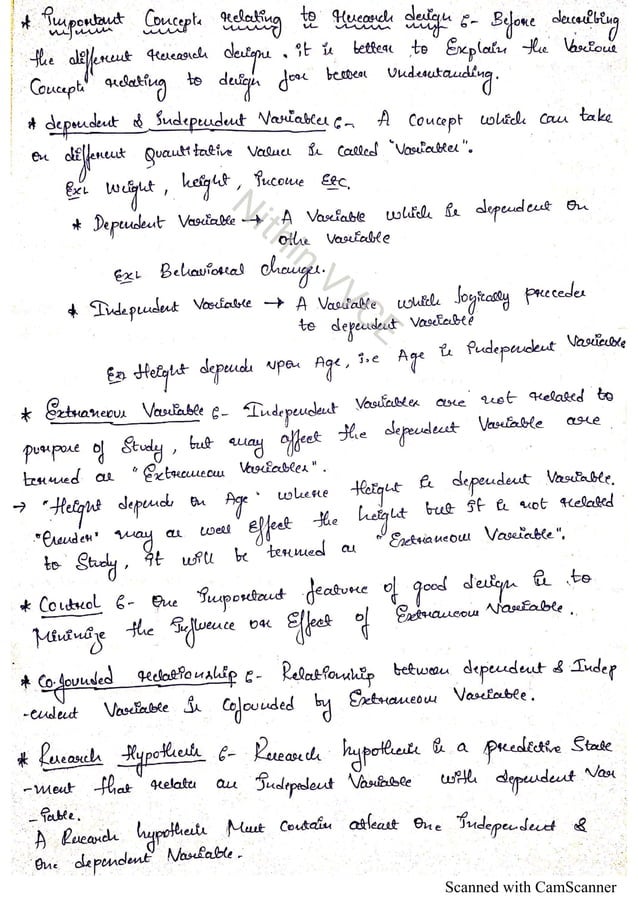 * Important Concepts relating to Research design :- Before describing
the different research designs, it is better to Explain the Various
Concepts relating to design for better Understanding.
* dependent & Independent Variables :- A Concept which can take
on different Quantitative Values is called "Variables".
Ex:- Weight, height, Income Etc.
* Dependent Variable → A Variable which is dependent on
othe Variable
Ex:- Behavioral changes.
* Independent Variable → A Variable which logically precedes
to dependent Variable
Ex: Height depends upon Age, i.e Age is Independent Variable
* Extraneous Variable :- Independent Variables are not related to
purpose of Study, but may affect the dependent Variable are
termed as "Extraneous Variables".
→ "Height depends on Age" where Height is dependent Variable.
"Gender" may as well Effect the height but it is not related
to Study, it will be termed as "Extraneous Variable".
* Control :- One Important feature of good design is to
Minimize the Influence or Effect of Extraneous Variable.
* Cofounded relationship :- Relationship between dependent & Indep
-endent Variable is Cofounded by Extraneous Variable.
* Research Hypothesis :- Research hypothesis is a predictive State
-ment that relates an Indepedent Variable with dependent Var
-iable.
A Research hypothesis Must Contain atleast One Independent &
One dependent Variable.
Nithin VVCE
Scanned with CamScanner